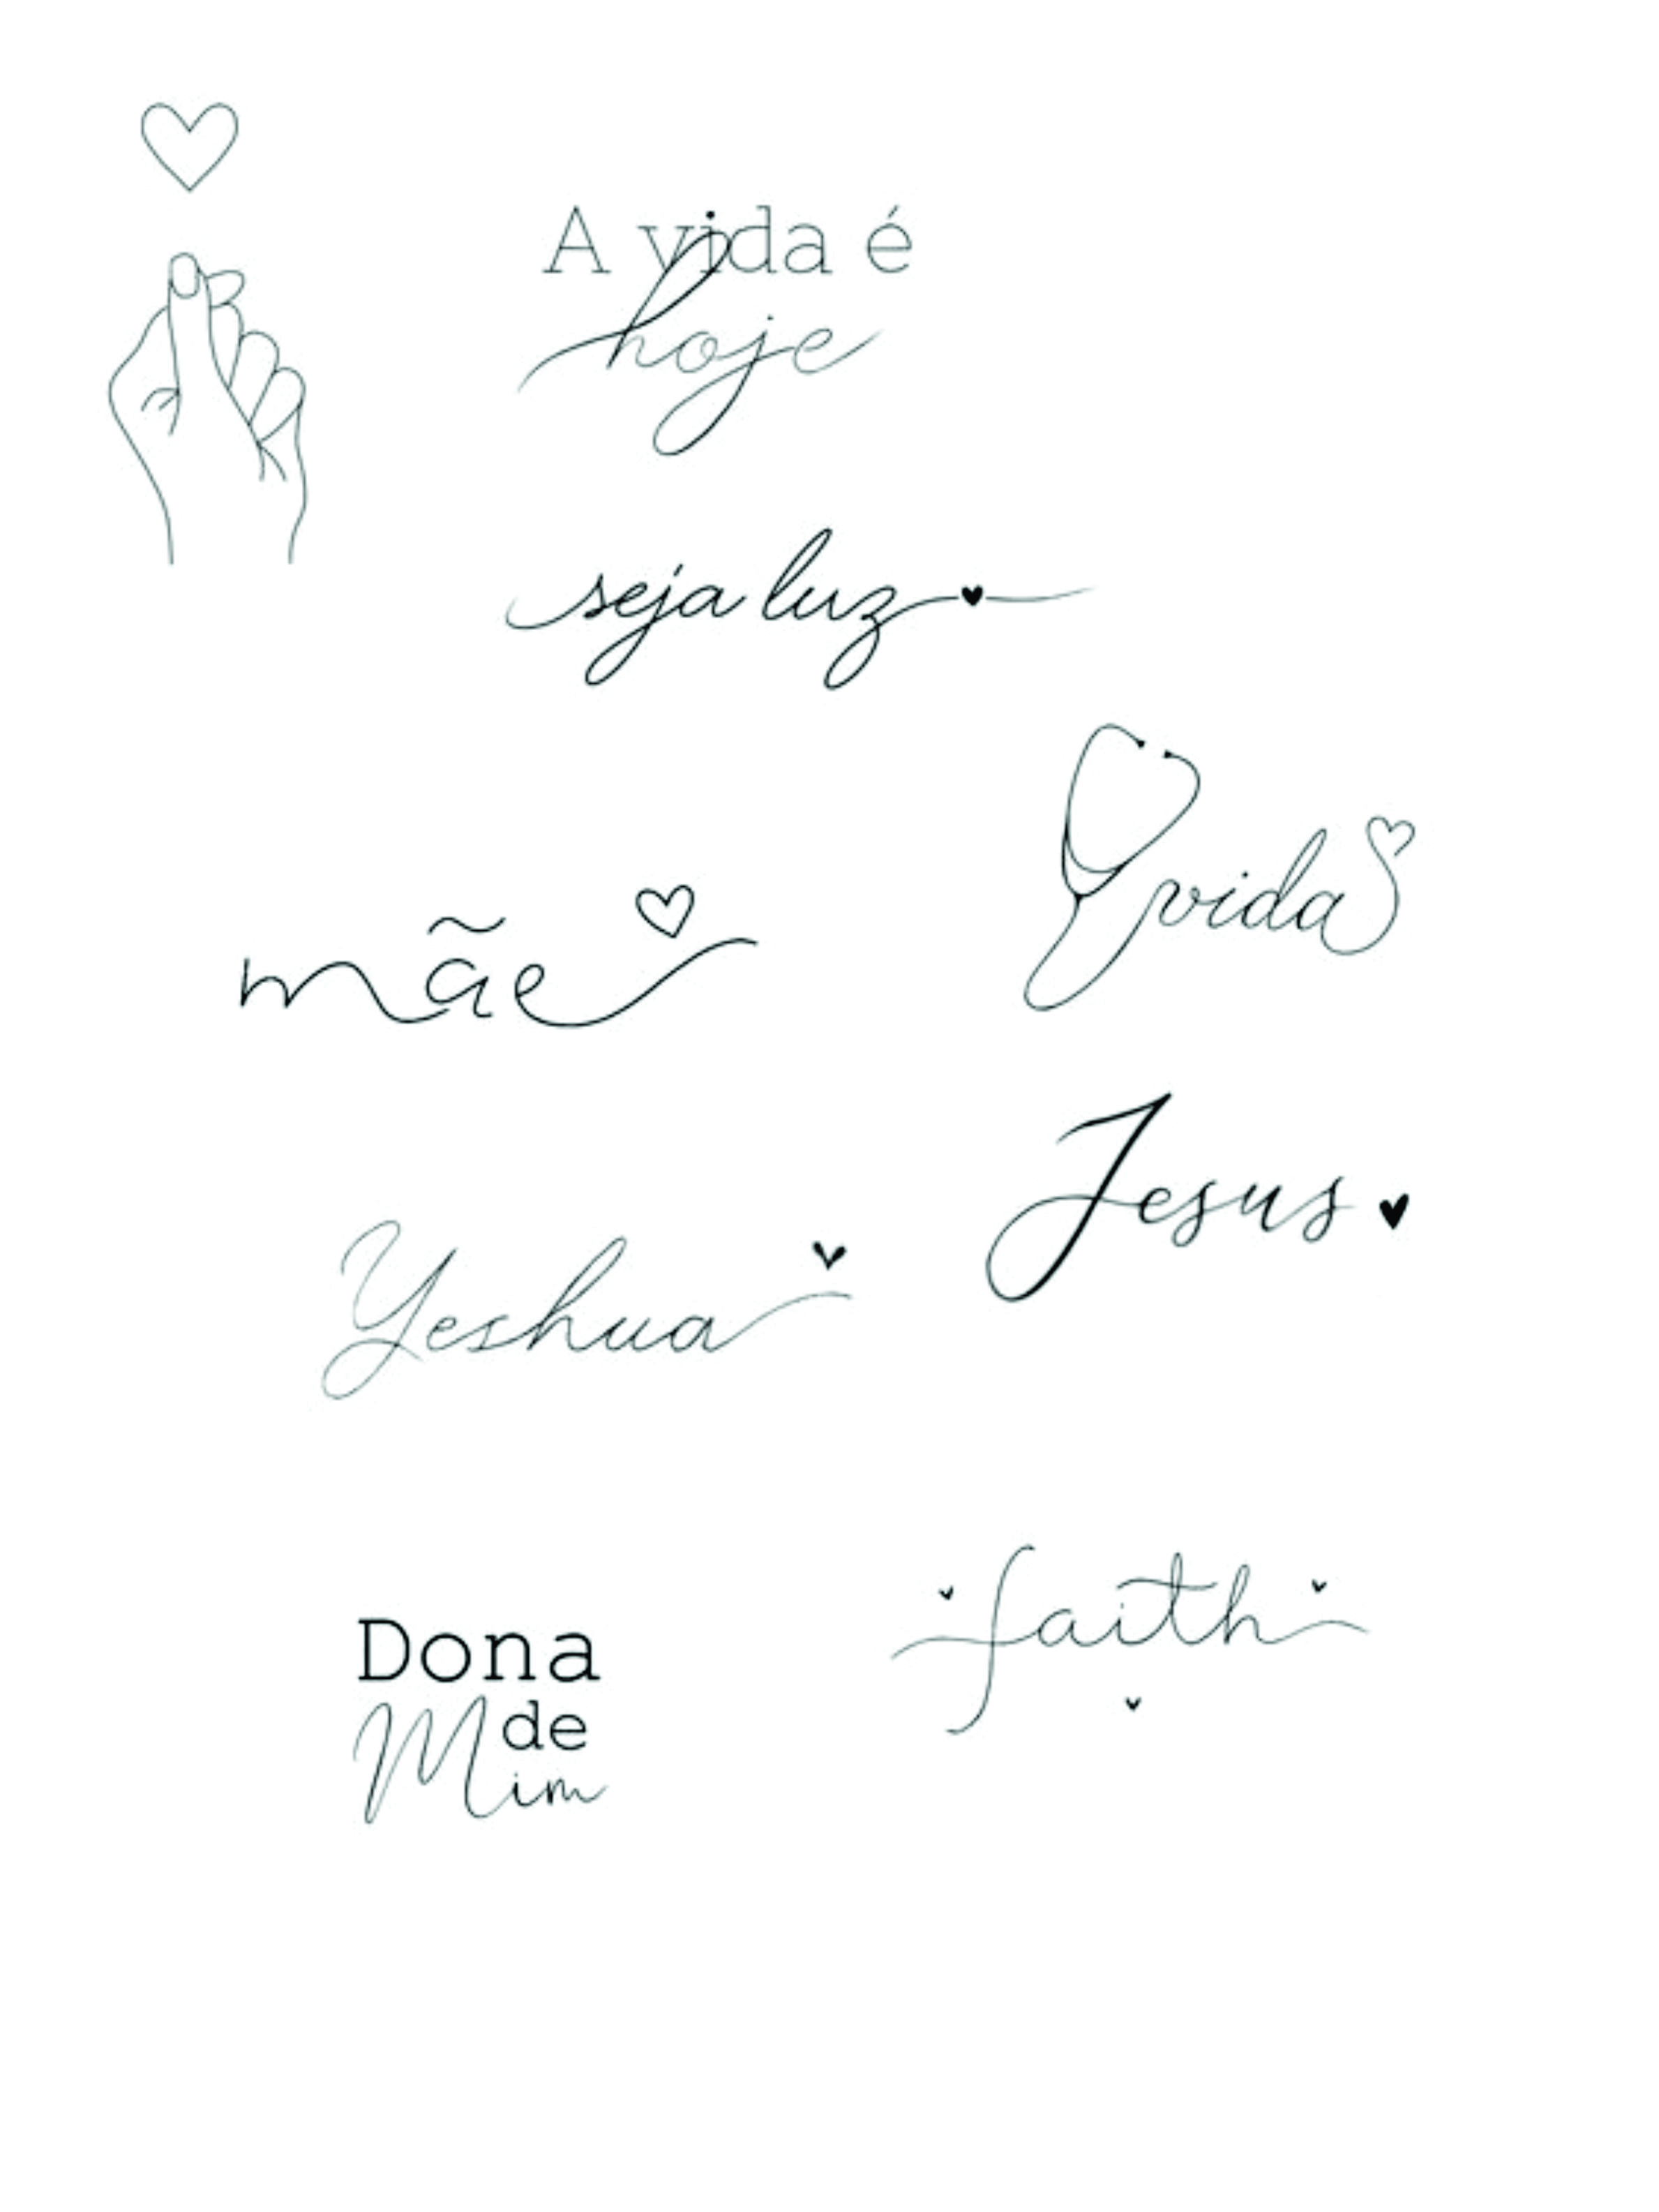 A vida é
hoje
seja luz
vida
mãe
Jesus
Yeshua
faith
Dona
de
Mim